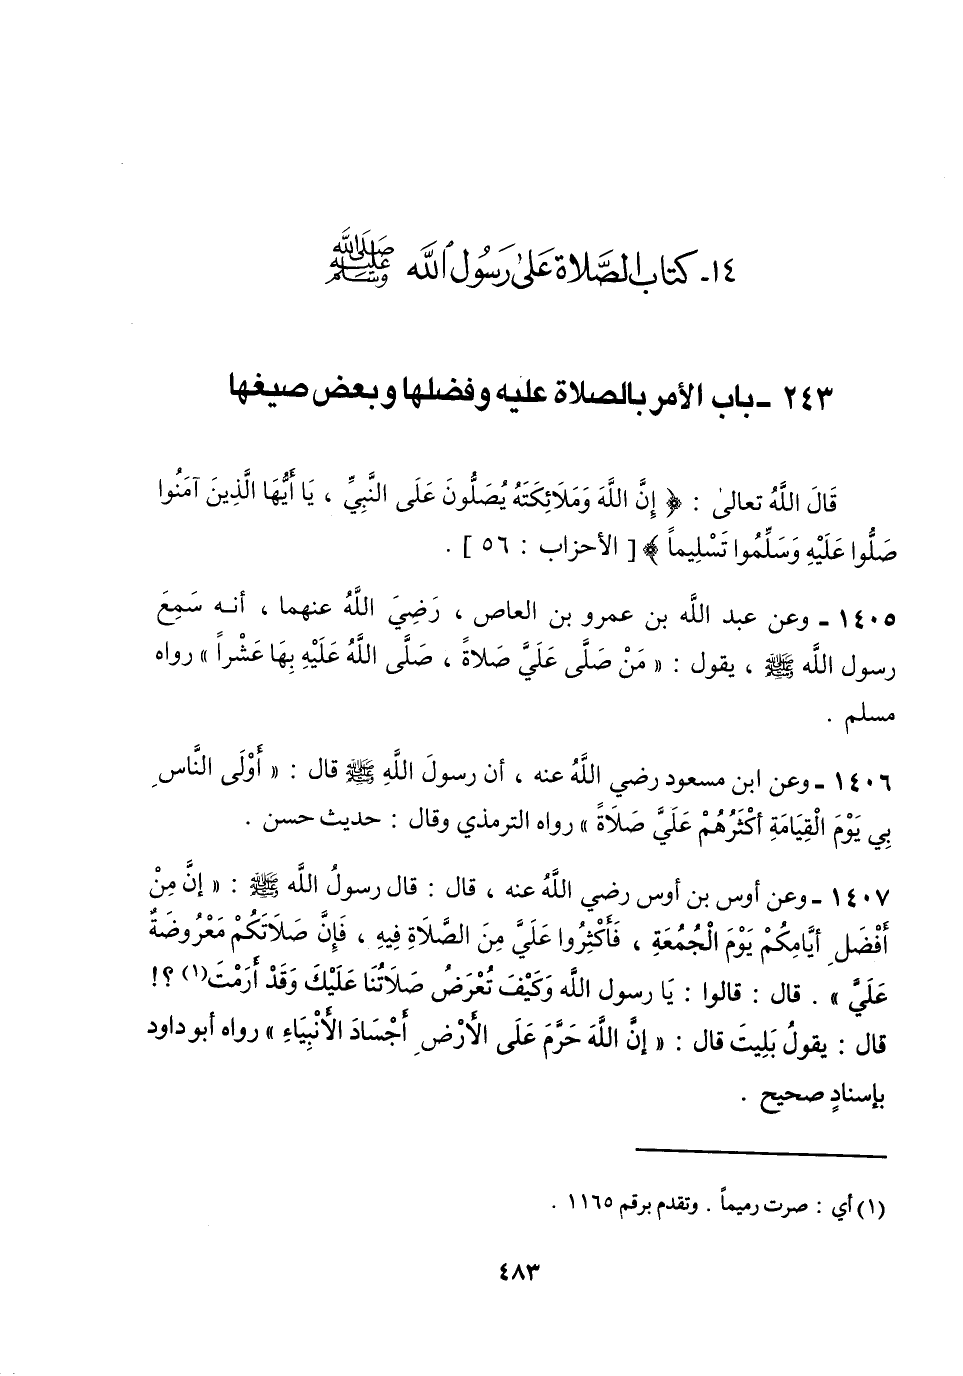 ١٤ـ كتاب الصَّلاة عَلىٰ رَسُول ٱللَّه ﷺ
٢٤٣ ـ باب الأمر بالصلاة عليه وفضلها وبعض صيغها
قَالَ اللَّهُ تعالىٰ : ﴿ إِنَّ اللَّهَ وَمَلَائِكَتَهُ يُصَلُّونَ عَلَى النَّبِيِّ ، يَا أَيُّهَا الَّذِينَ آمَنُوا
صَلُّوا عَلَيْهِ وَسَلِّمُوا تَسْلِيماً ﴾ [ الأحزاب : ٥٦ ] .
١٤٠٥ ـ وعن عبد اللَّه بن عمرو بن العاص ، رَضِيَ اللَّهُ عنهما ، أنـه سَمِعَ
رسول اللَّه ﷺ ، يقول : « مَنْ صَلَّى عَلَيَّ صَلاةً ، صَلَّى اللَّهُ عَلَيْهِ بِهَا عَشْراً » رواه
مسلم .
١٤٠٦ ـ وعن ابن مسعود رضي اللَّهُ عنه ، أن رسولَ اللَّهِ ﷺ قال : « أَوْلَى النَّاسِ
بِي يَوْمَ الْقِيَامَةِ أكْثَرُهُمْ عَلَيَّ صَلَاةً » رواه الترمذي وقال : حديث حسن .
١٤٠٧ ـ وعن أوس بن أوس رضي اللَّهُ عنه ، قال : قال رسولُ اللَّه ﷺ : « إنَّ مِنْ
أَفْضَلِ أيَّامِكُمْ يَوْمَ الْجُمُعَةِ ، فَأَكْثِرُوا عَلَيَّ مِنَ الصَّلَاةِ فِيهِ ، فَإِنَّ صَلَاتَكُمْ مَعْرُوضَةٌ
عَلَيَّ » . قال : قالوا : يَا رسول اللَّه وَكَيْفَ تُعْرَضُ صَلَاتُنَا عَلَيْكَ وَقَدْ أَرَمْتَ(١) ؟!
قال : يقولُ بَلِيتَ قال : « إنَّ اللَّهَ حَرَّمَ عَلَى الأَرْضِ أَجْسَادَ الأَنْبِيَاءِ » رواه أبو داود
بإسنادٍ صحيح .
(١) أي : صرت رميماً . وتقدم برقم ١١٦٥ .
٤٨٣